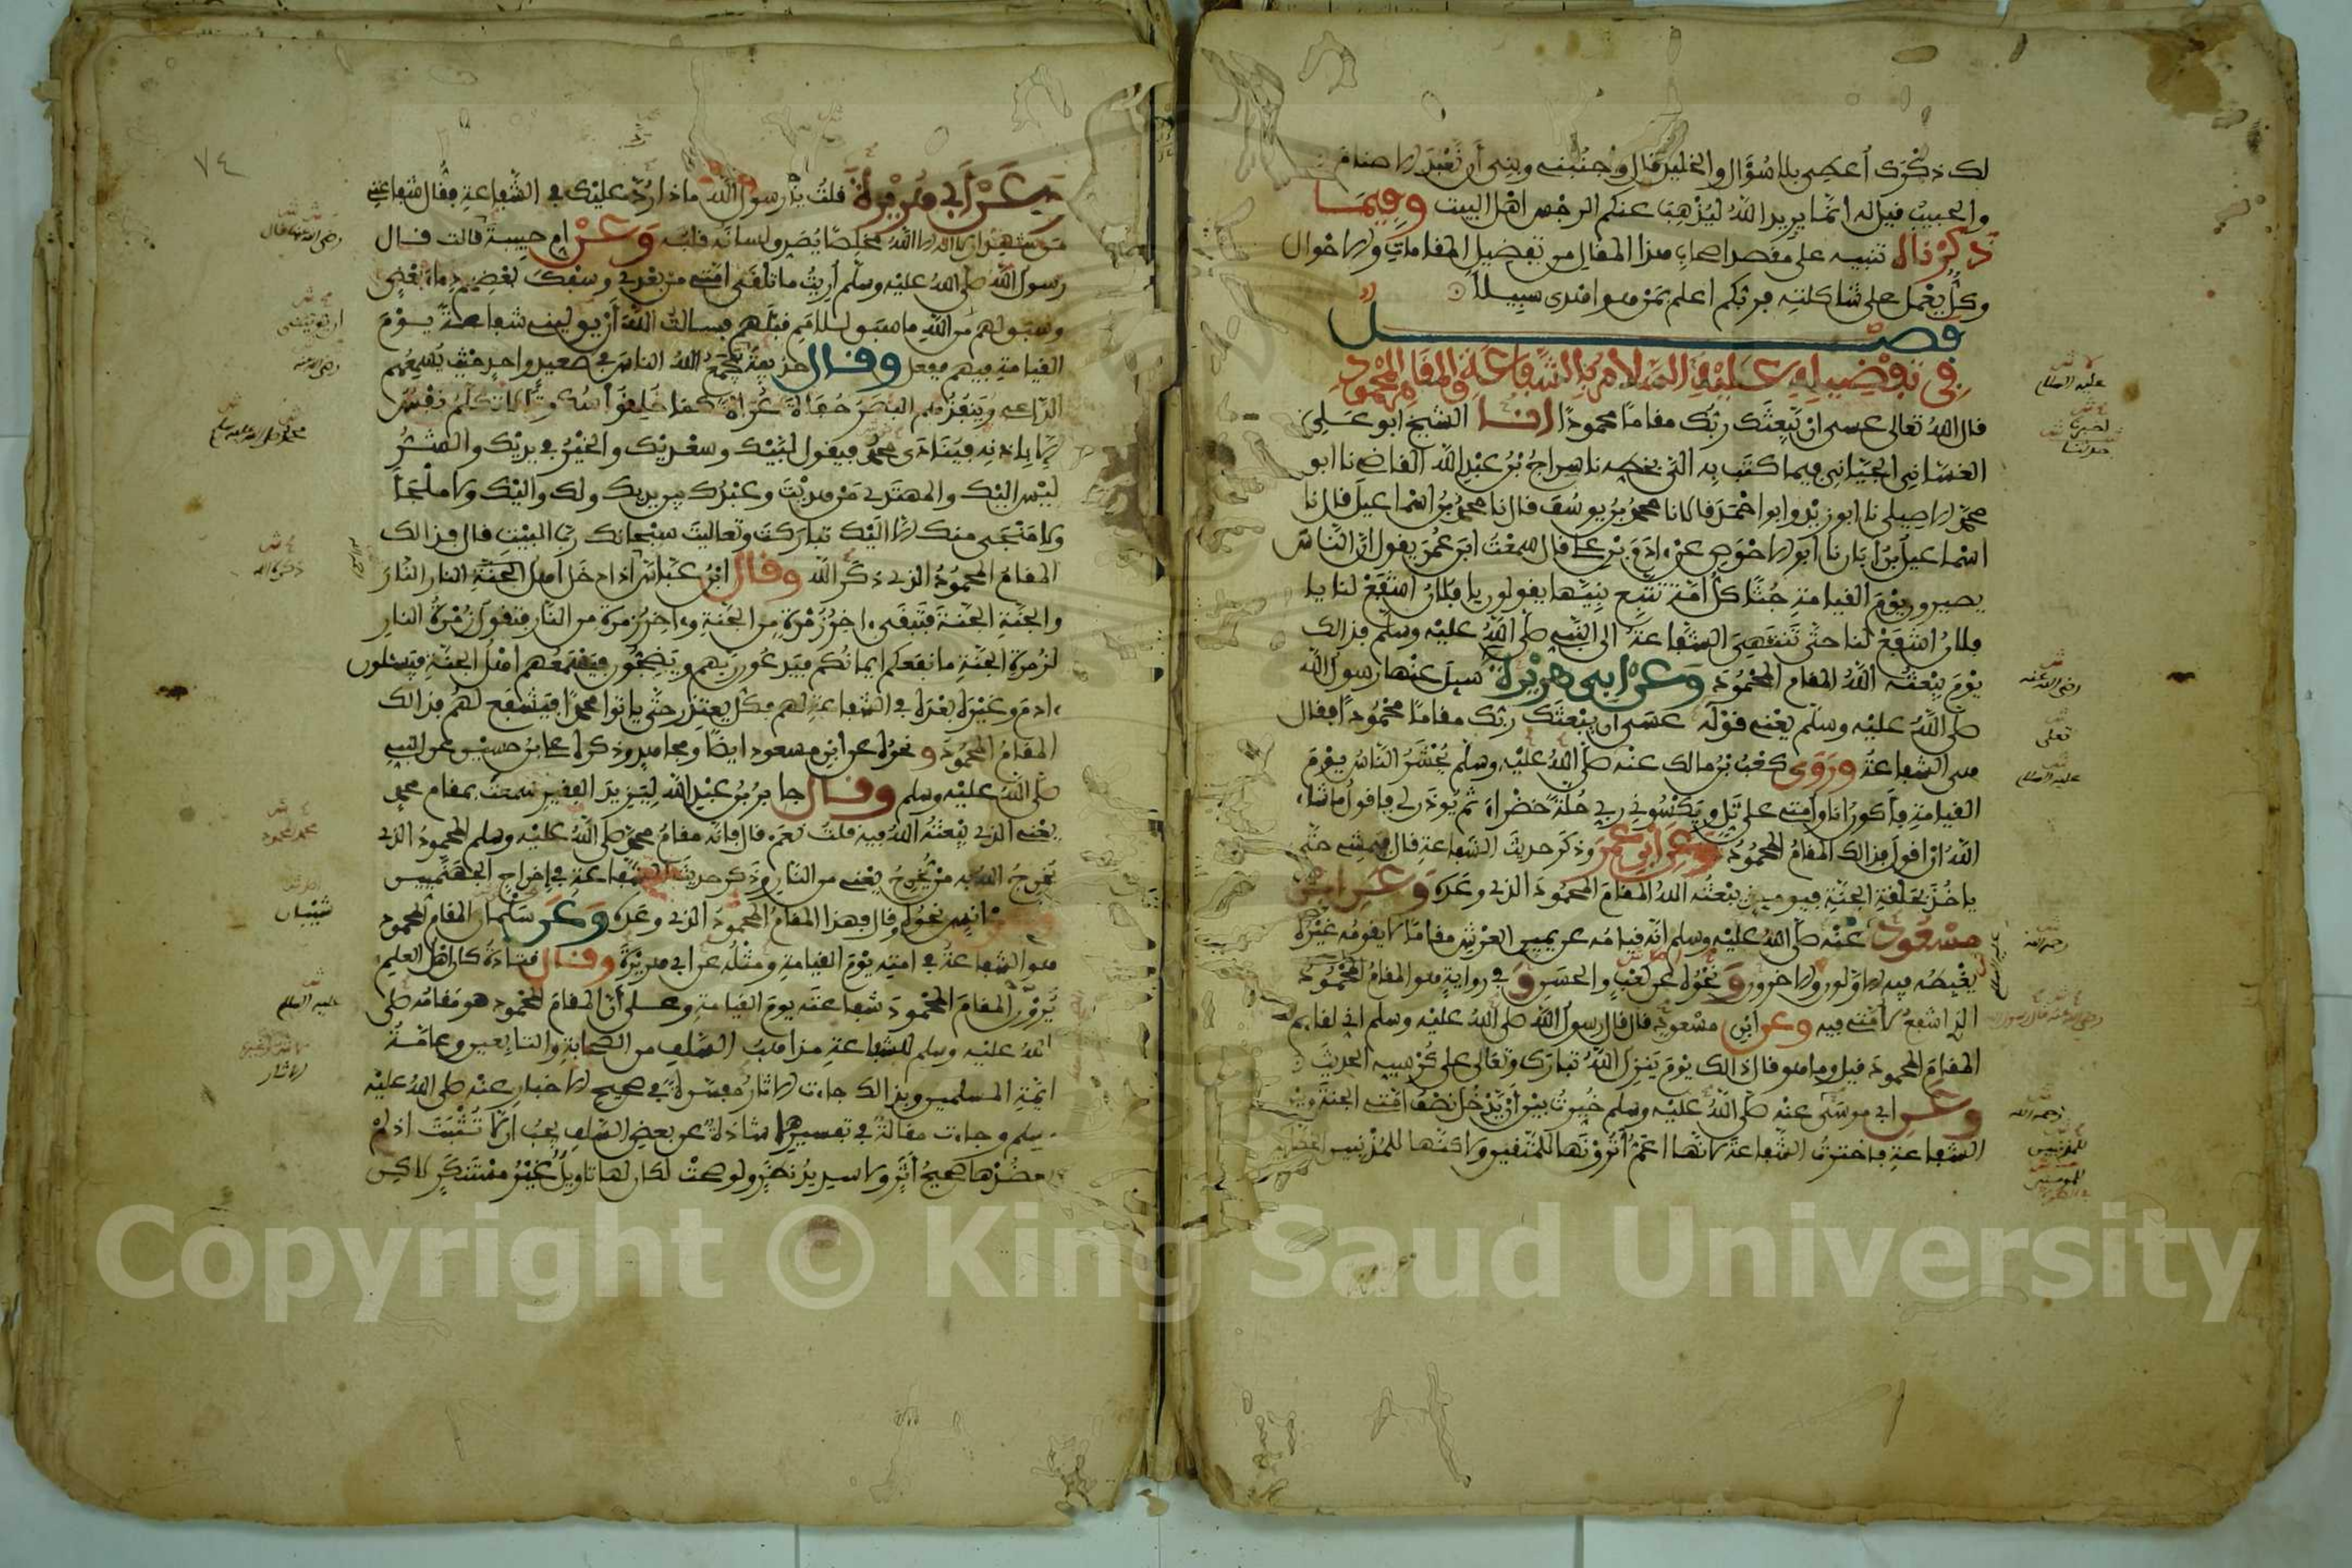 لك ذكرك أعطي بلا سؤال والخليل قال واجنبني وبني أن نعبد الاصنام
والحبيب قيل له انما يريد الله ليذهب عنكم الرجس اهل البيت وفيما
ذكرنال تنبيه على مقصد اصحاب هذا المقال من تفضيل المقامات والاحوال
وكل يعمل على شاكلته فربكم اعلم بمن هو اهدى سبيلا
فصل
في تفضيله عليه السلام بالشفاعة والمقام المحمود
قال الله تعالى عسى ان يبعثك ربك مقاما محمودا انا الشيخ ابو علي
الغساني الجياني فيما كتب به الي بخطه نا سراج بن عبد الله القاضي نا ابو
محمد الاصيلي نا ابو زيد وابو احمد قالا نا محمد بن يوسف قال نا محمد بن اسماعيل قال نا
اسماعيل بن ابان نا ابو الاحوص عن ادم بن علي قال سمعت ابن عمر يقول ان الناس
يصيرون يوم القيامة جثا كل امة تتبع نبيها يقولون يا فلان اشفع لنا يا
فلان اشفع لنا حتى تنتهي الشفاعة الى النبي صلى الله عليه وسلم فذالك
يوم يبعثه الله المقام المحمود وعن ابي هريرة سيل عنها رسول الله
صلى الله عليه وسلم يعني قوله عسى ان يبعثك ربك مقاما محمودا فقال
هي الشفاعة وروى كعب بن مالك عنه صلى الله عليه وسلم يحشر الناس يوم
القيامة فأكون انا وأمتي على تل ويكسوني ربي حلة خضراء ثم يوذن لي فاقول ما شاء
الله ان اقول فذالك المقام المحمود وعن ابن عمر وذكر حديث الشفاعة قال فيمشي حتى
ياخذ بحلقة الجنة فيوميذ يبعثه الله المقام المحمود الذي وعده وعن ابن
مسعود عنه صلى الله عليه وسلم انه قيامه عن يمين العرش مقاما لا يقومه غيره
يغبطه فيه الاولون والاخرون ونحوه عن كعب والحسن وفي رواية هو المقام المحمود
الذي اشفع لامتي فيه وعن ابن مسعود قال قال رسول الله صلى الله عليه وسلم اني لقايم
المقام المحمود قيل وما هو قال ذالك يوم ينزل الله تبارك وتعالى على كرسيه الحديث
وعن ابي موسى عنه صلى الله عليه وسلم خيرت بين أن يدخل نصف امتي الجنة وبين
الشفاعة فاخترت الشفاعة لانها اعم أترونها للمتقين ولاكنها للمذنبين
عليه السلام
اخبرنا
حدثنا
رضي الله عنه
تعلى
عليه السلام
رحمه الله
رحمه الله
للمذنبين
للمومنين
٧٤
وعن أبي هريرة قلت يا رسول الله ماذا رد عليك في الشفاعة فقال شفاعتي
لمن شهد ان لا اله الا الله مخلصا يصدق لسانه قلبه وعن ام حبيبة قالت قال
رسول الله صلى الله عليه وسلم أريت ما تلقى امتي من بعدي وسفك بعضهم دماء بعض
وسبق لهم من الله ما سبق للامم قبلهم فسالت الله أن يوليني شفاعة يوم
القيامة فيهم ففعل وقال حذيفة يجمع الله الناس في صعيد واحد حيث يسمعهم
الداعي وينفذهم البصر حفاة عراة كما خلقوا سكوتا لا تكلم نفس
الا باذنه فينادى محمد فيقول لبيك وسعديك والخير في يديك والشر
ليس اليك والمهتدي من هديت وعبدك بين يديك ولك واليك ولا ملجأ
ولا منجى منك الا اليك تباركت وتعاليت سبحانك رب البيت قال فذالك
المقام المحمود الذي ذكر الله وقال ابن عباس اذا دخل اهل النار النار
واهل الجنة الجنة فتبقى اخر زمرة من الجنة واخر زمرة من النار فتقول زمرة النار
لزمرة الجنة ما نفعكم ايمانكم فيدعون ربهم ويضجون فيسمعهم اهل الجنة فيسئلون
ادم وغيره بعده في الشفاعة لهم فكل يعتذر حتى ياتوا محمدا فيشفع لهم فذالك
المقام المحمود ونحوه عن ابن مسعود ايضا ومجاهد وذكره علي بن حسين عن النبي
صلى الله عليه وسلم وقال جابر بن عبد الله ليزيد الفقير سمعت بمقام محمد
يعني الذي يبعثه الله فيه قلت نعم قال فانه مقام محمد صلى الله عليه وسلم المحمود الذي
يخرج الله به من يخرج يعني من النار وذكر حديث الشفاعة في إخراج الجهنميين
وعن انس نحوه وقال فهذا المقام المحمود الذي وعده وعن سلمان المقام المحمود
هو الشفاعة في امته يوم القيامة ومثله عن ابي هريرة وقال قتادة كان اهل العلم
يرون المقام المحمود شفاعته يوم القيامة وعلى أن المقام المحمود هو مقامه صلى
الله عليه وسلم للشفاعة مذاهب السلف من الصحابة والتابعين وعامة
ايمة المسلمين وبذالك جاءت الاثار مفسرة في صحيح الاخبار عنه صلى الله عليه
وسلم وجاءت مقالة في تفسيرها شاذة عن بعض السلف يجب ان لا تثبت اذ لم
يعضدها صحيح أثر ولا سديد نظر ولو صحت لكان لها تاويل غير مستنكر لاكن
محمد صلى الله عليه وسلم
ذكره الله
شيبان
عليه السلام
الاثار
Copyright © King Saud University